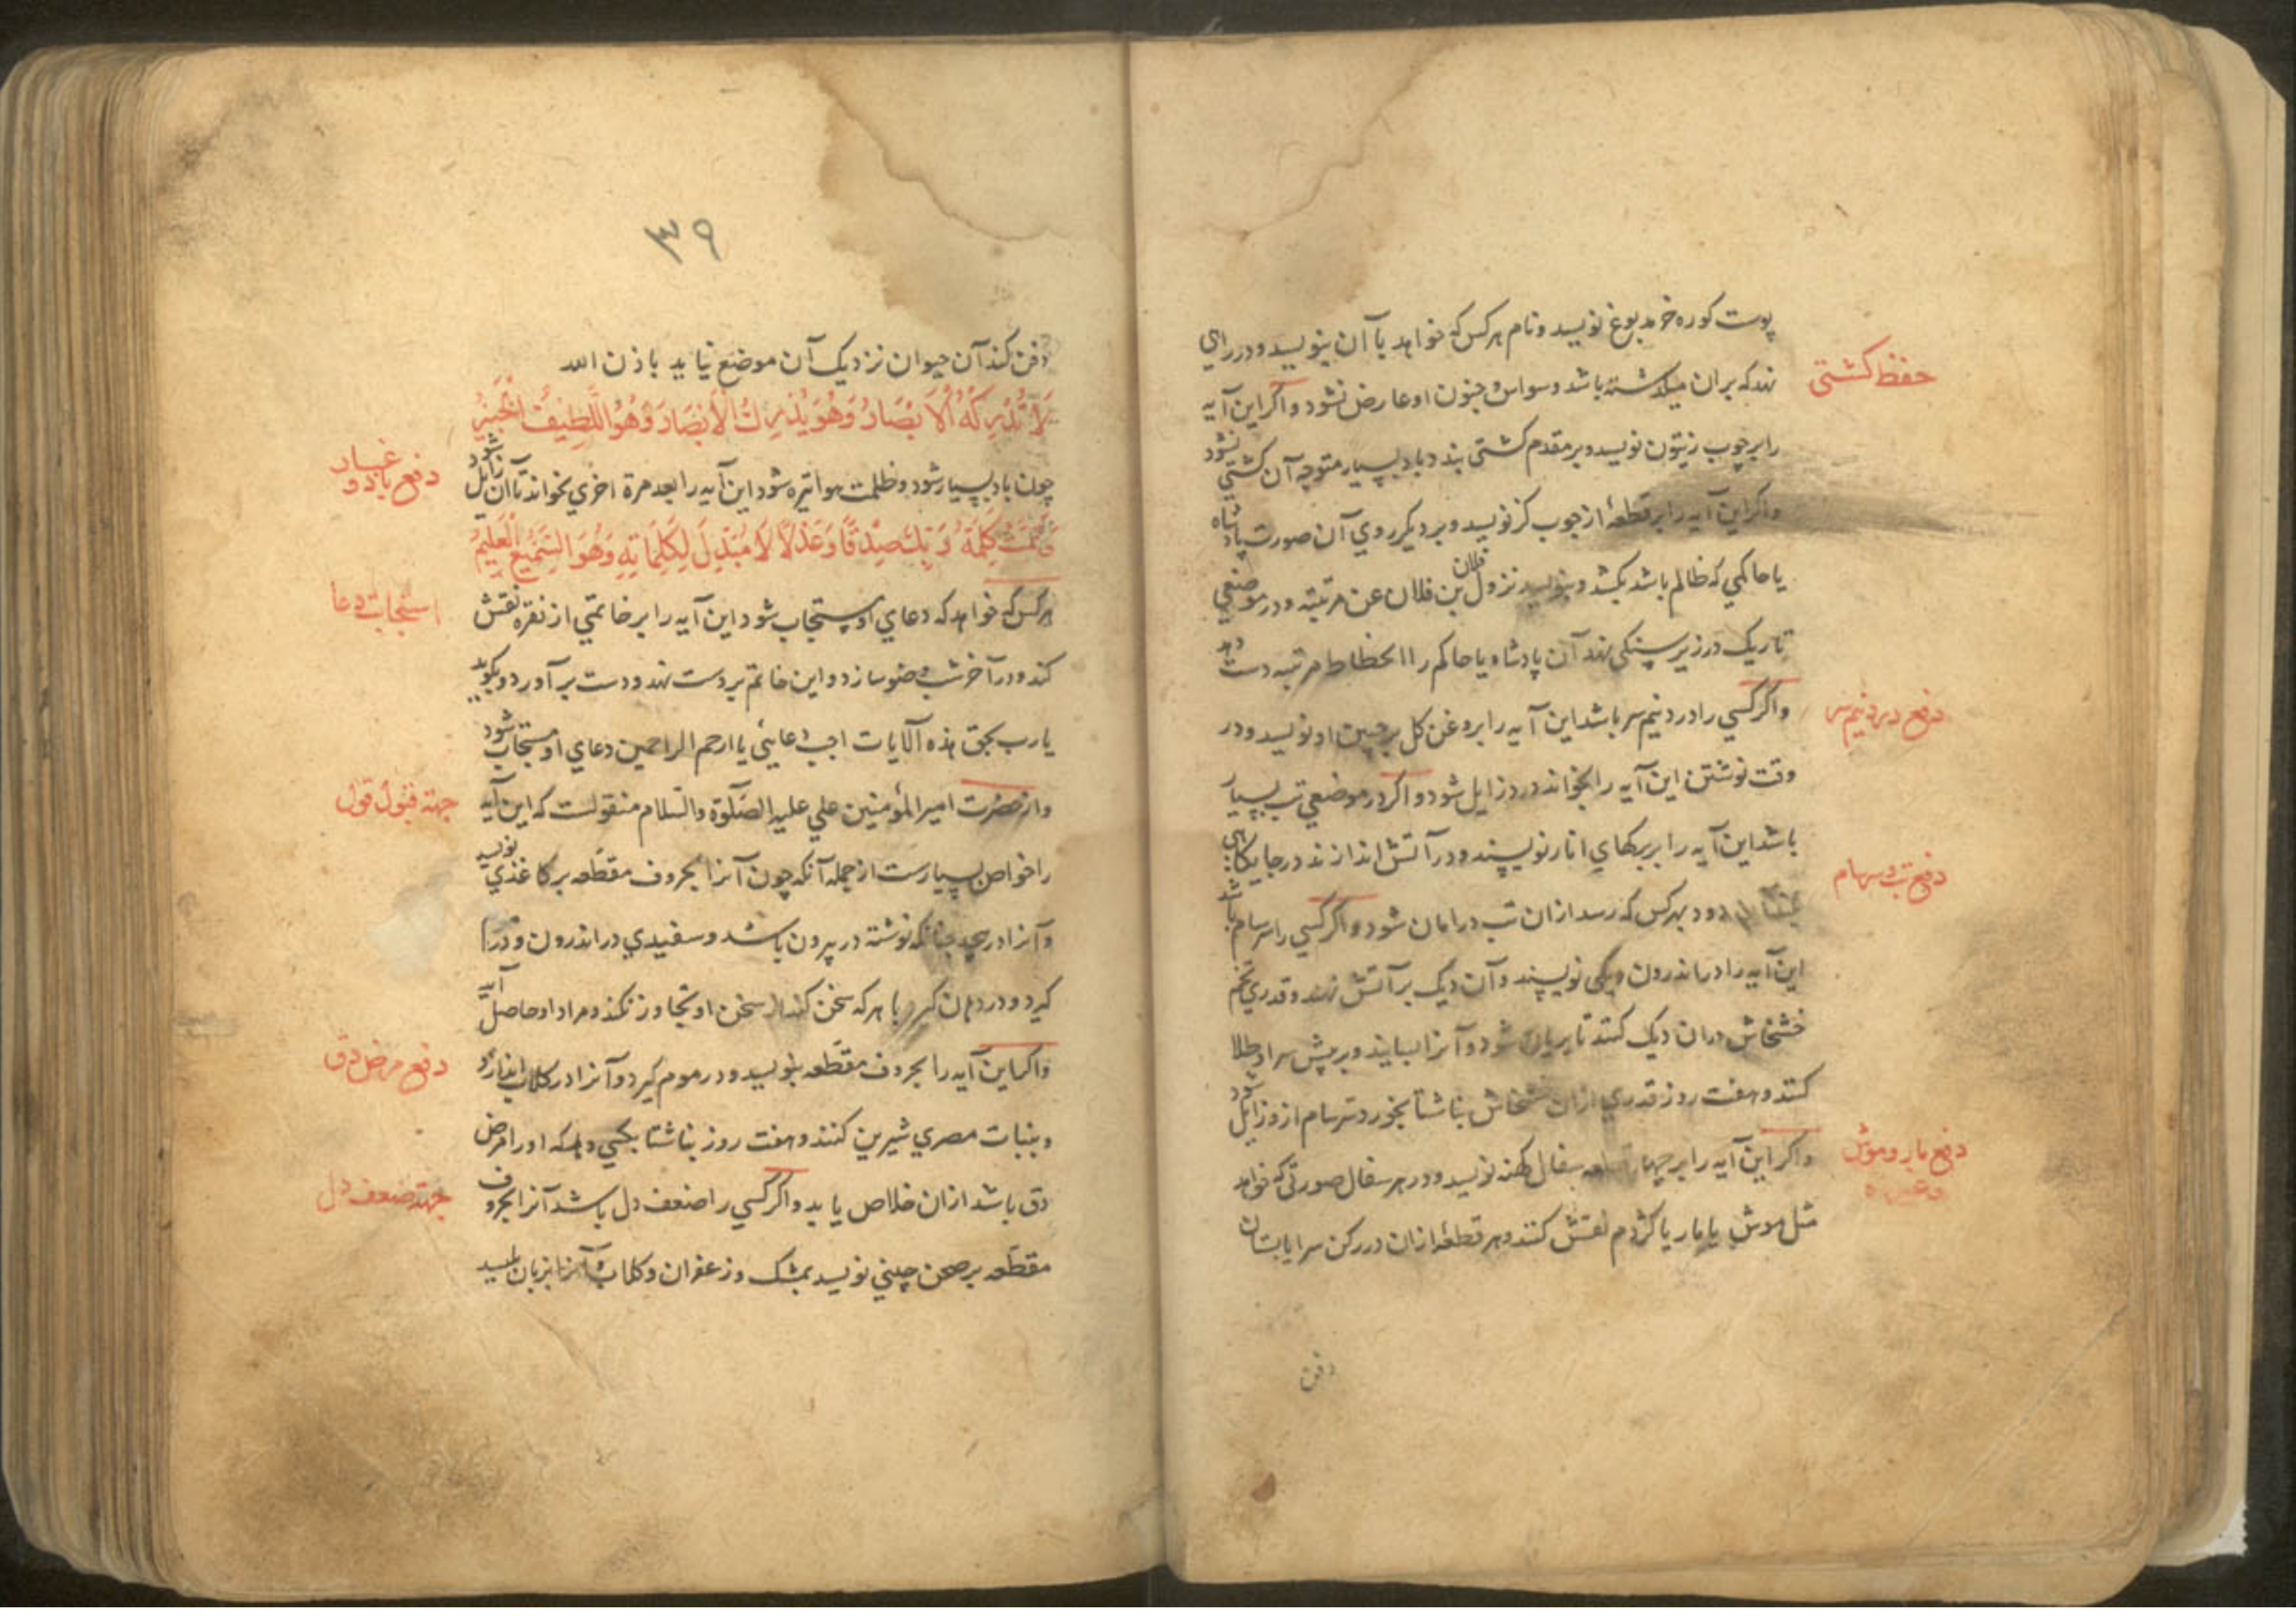 پوست کوره خر مدبوغ نویسد و نام هر کس که خواهد با آن بنویسد و در راهی
حفظ کشتی
نهد که بران میکذشته باشد وسواس و جنون او عارض نشود و اکر این آیه
را بر چوب زیتون نویسد و بر مقدم کشتی بندد باد بسیار متوجه آن کشتی نشود
و اکر این آیه را بر قطعهٔ از چوب کز نویسد و بر دیکر روی آن صورت پادشاه
یا حاکمی که ظالم باشد بکشد و بنویسد نزول فلان بن فلان عن مرتبته و در موضعی
تاریک در زیر سنکی نهد آن پادشاه یا حاکم را انحطاط مرتبه دست دهد
دفع درد نیم سر
و اکر کسی را درد نیم سر باشد این آیه را بروغن کل بر جبین او نویسد و در
وقت نوشتن این آیه را بخواند درد زایل شود و اکر در موضعی تب بسیار
باشد این آیه را بر برکهای انار نویسند و در آتش اندازند در جایکاهی
دفع تب و سرسام
دود بهر کس که رسد ازان تب در امان شود و اکر کسی را سرسام باشد
این آیه را در اندرون دیکی نویسند و آن دیک بر آتش نهند و قدری تخم
خشخاش دران دیک کنند تا بریان شود و آنرا بسایند و بر پیش سر او طلا
کنند و هفت روز قدری ازان خشخاش بناشتا بخورد سرسام ازو زایل شود
دفع مار و موش
وغیره
و اکر این آیه را بر چهار قطعه سفال کهنه نویسد و در هر سفال صورتی که خواهد
مثل موش یا مار یا کژدم نقش کنند و هر قطعهٔ ازان در رکن سرا یا بستان
دفن
۳۹
دفن کند آن حیوان نزدیک آن موضع نیاید باذن الله
لَا تُدْرِكُهُ الْأَبْصَارُ وَهُوَ يُدْرِكُ الْأَبْصَارَ وَهُوَ اللَّطِيفُ الْخَبِيرُ
دفع غبار
باد و
چون باد بسیار شود و ظلمت هوا تیره شود این آیه را بعد مرة اخری بخواند تا آن زایل شود
وَتَمَّتْ كَلِمَةُ رَبِّكَ صِدْقًا وَعَدْلًا لَا مُبَدِّلَ لِكَلِمَاتِهِ وَهُوَ السَّمِيعُ الْعَلِيمُ
استجابت دعا
هر کس که خواهد که دعای او مستجاب شود این آیه را بر خاتمی از نقره نقش
کند و در آخر شب وضو سازد و این خاتم بر دست نهد و دست بر آورد و بکوید
یا رب بحق هذه الآیات اجب دعایی یا ارحم الراحمین دعای او مستجاب شود
جهة قبول قول
و از حضرت امیر المؤمنین علی علیه الصلوة والسلام منقولست که این آیه
را خواص بسیارست از جمله آنکه چون آنرا بحروف مقطعه بر کاغذی نویسد
و آنرا در پیچد چنانکه نوشته در بیرون باشد و سفیدی در اندرون و در
کیرد و در دهن کیرد با هر که سخن کند از سخن او تجاوز نکند و مراد او حاصل آید
دفع مرض دق
و اکر این آیه را بحروف مقطعه بنویسد و در موم کیرد و آنرا در کلاب اندازد
و بنبات مصری شیرین کنند و هفت روز بناشتا بکسی دهد که او را مرض
جهة ضعف دل
دق باشد ازان خلاص یابد و اکر کسی را ضعف دل باشد آنرا بحروف
مقطعه بر صحن چینی نویسد بمشک و زعفران و کلاب و آنرا بزبان بلیسد